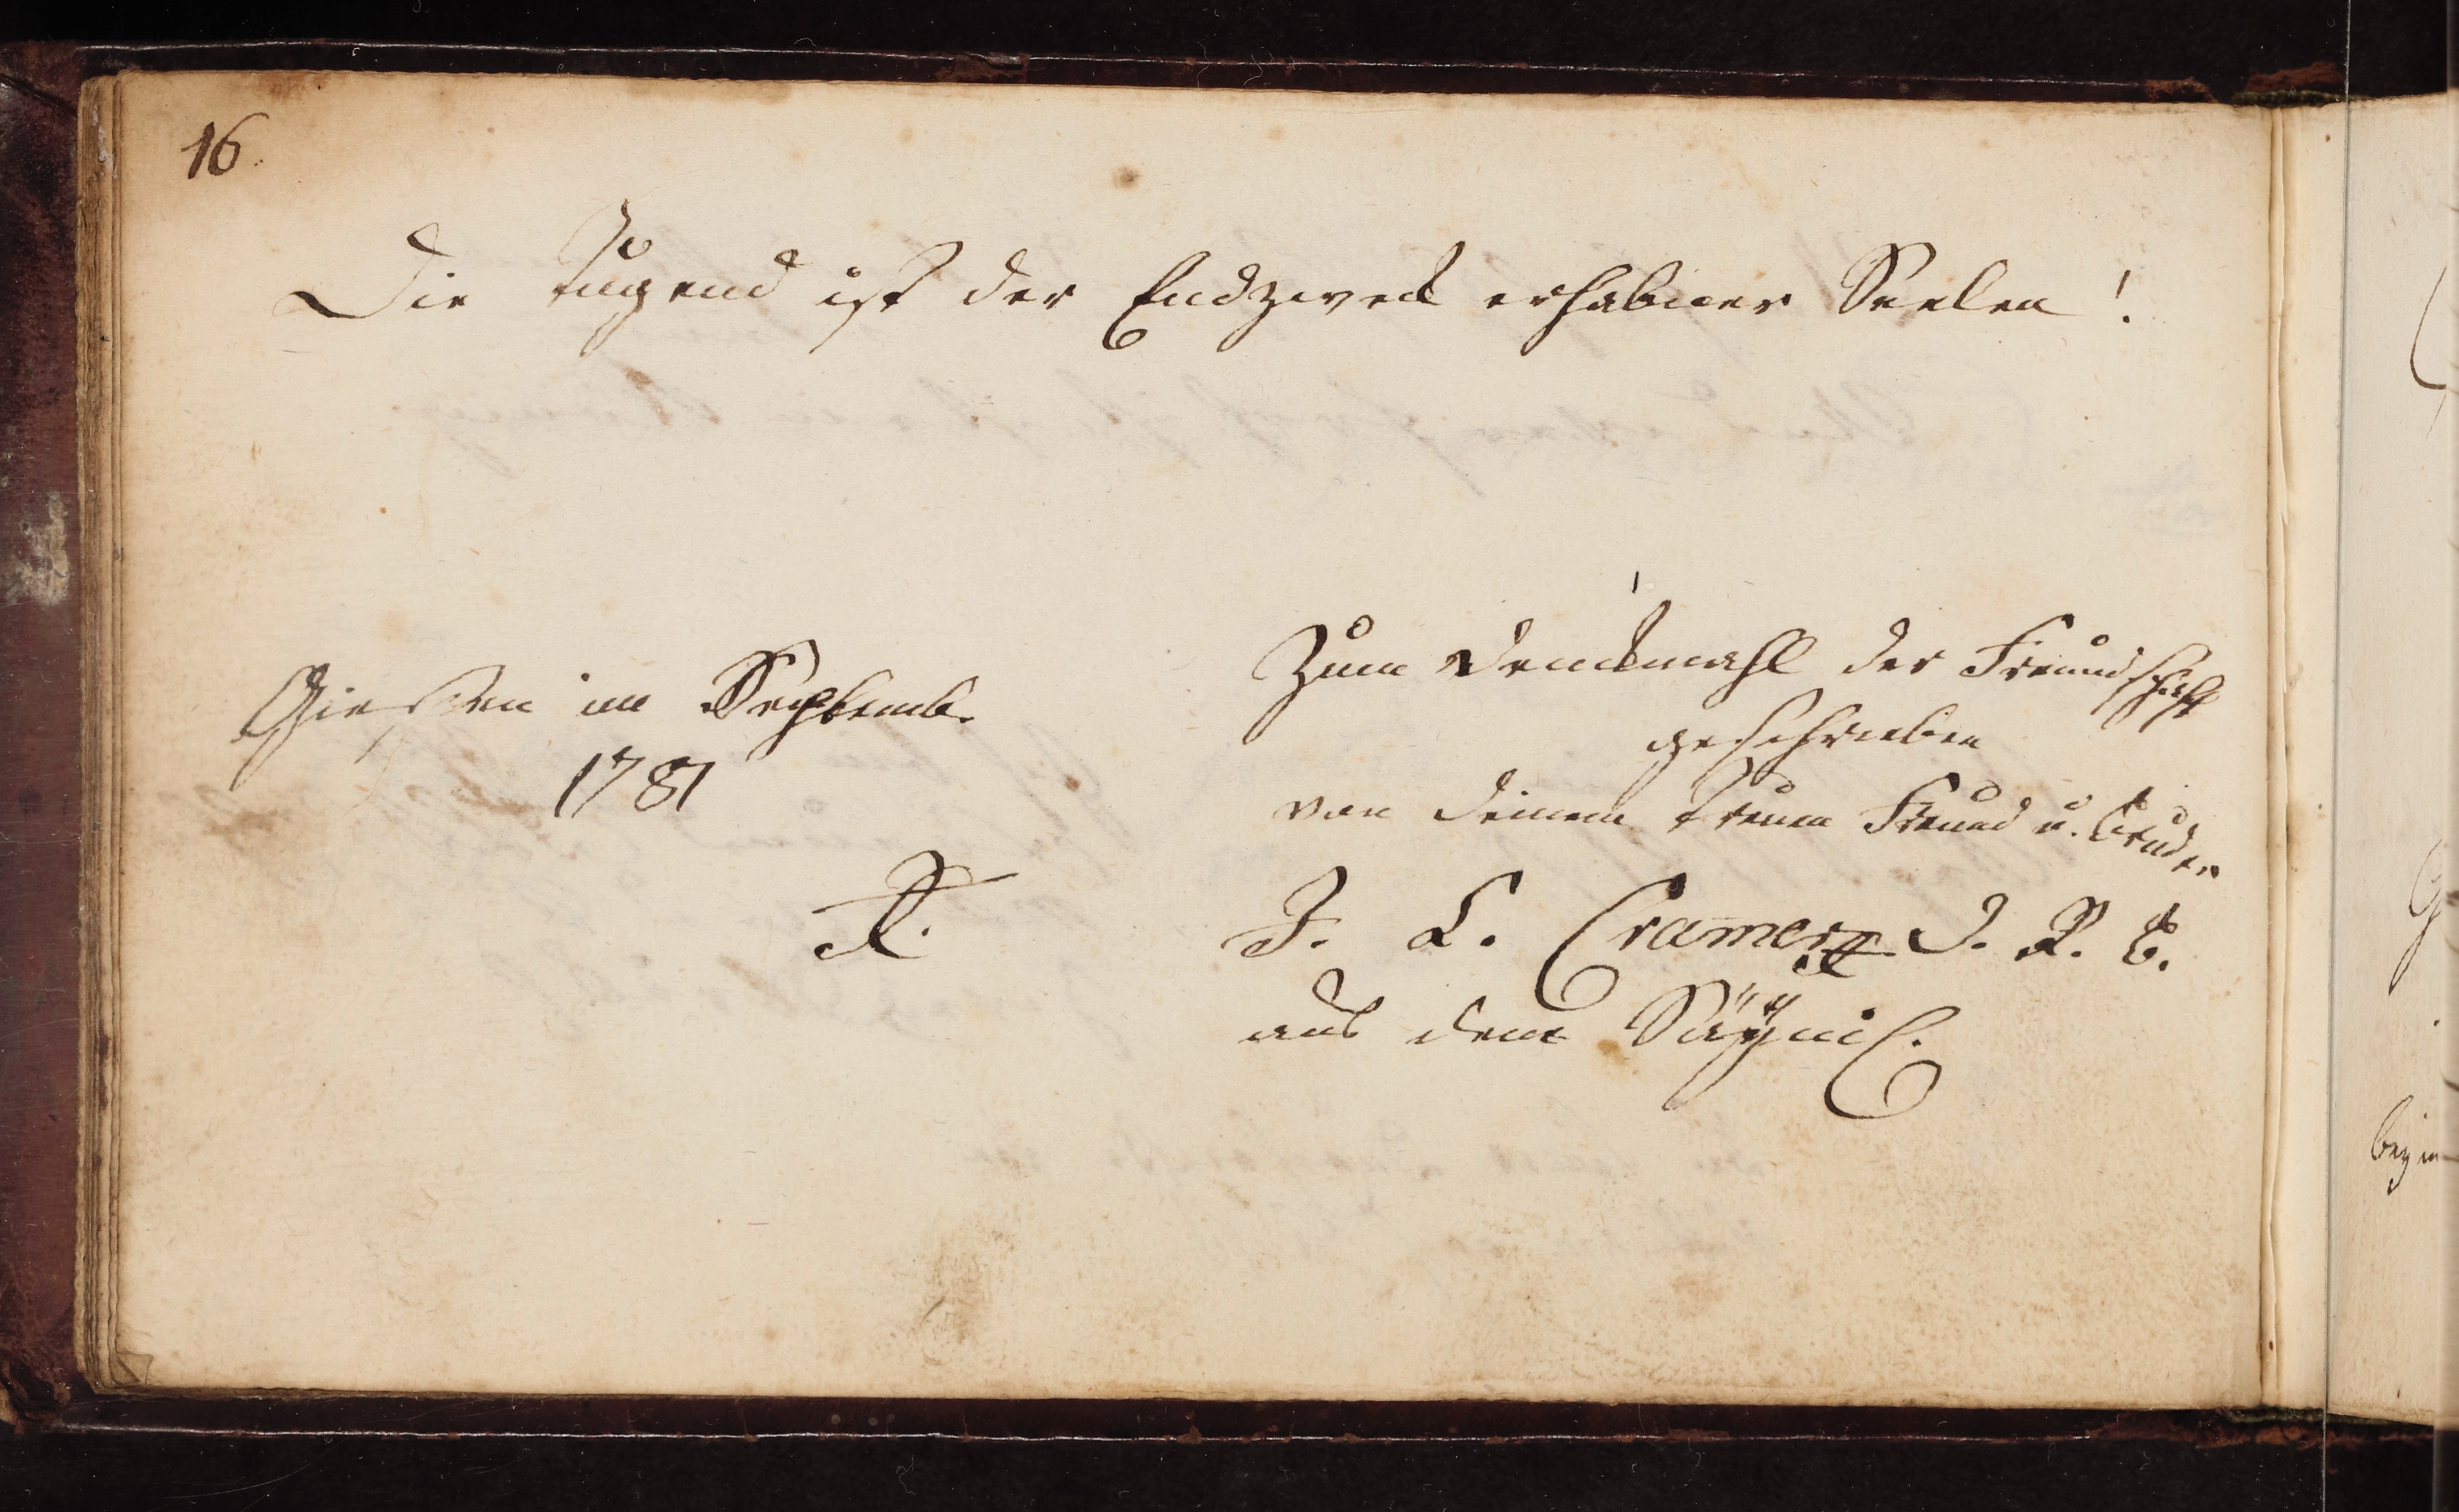 16.
Die Tugend ist der Endzweck erhabner Seelen!
Giessen im Septemb.
1781
Zum Denckmahl der Freundschafft
geschrieben
von deinem treuen Freund u. Bruder
J. L. Cramer J. R. B.
aus dem Säÿnis.
beg